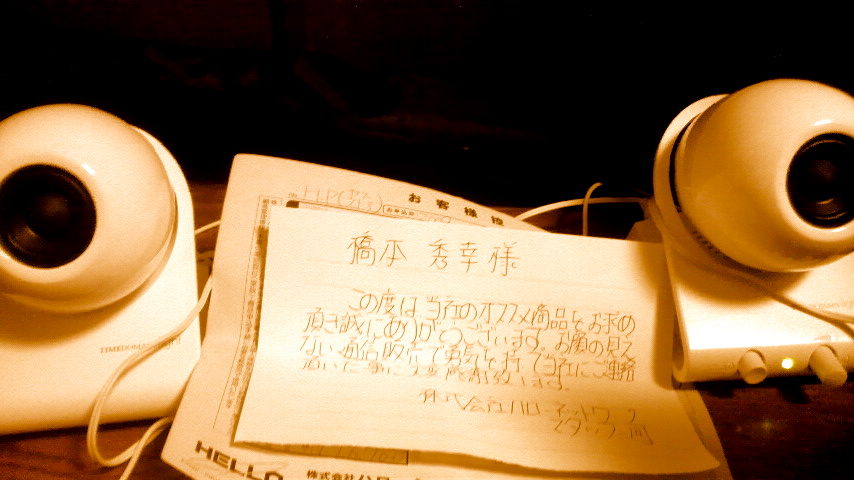 お客様控
橋本 秀幸様
この度は、当社のオススメ商品をお求め
頂き誠にありがとうございます。お顔の見え
ない通信販売で勇気を持って当社にご連絡
頂いた事に大変感謝致します。
株式会社ハローネットワーク
スタッフ一同
TIMEDOMAIN
HELLO
株式会社